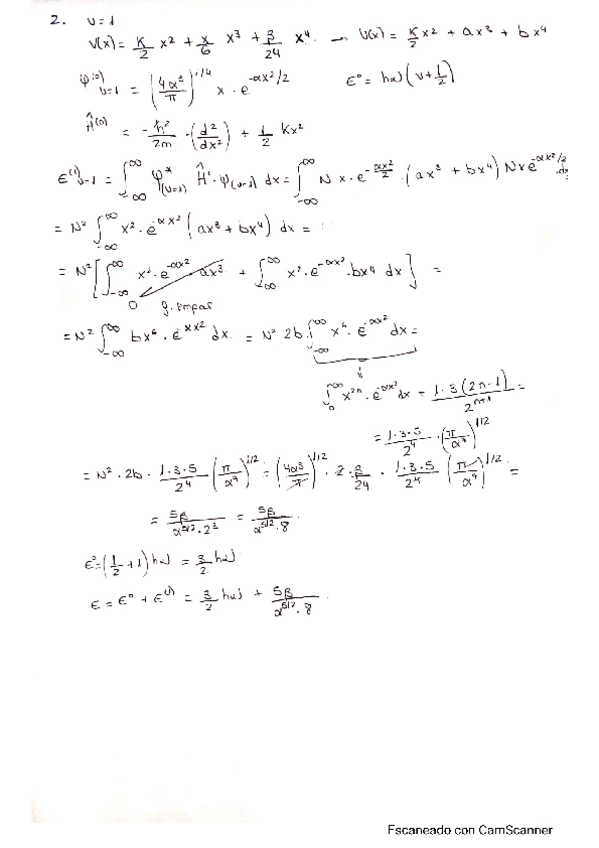 2. v=1
V(x) = K/2 x² + γ/6 x³ + β/24 x⁴ → V(x) = K/2 x² + ax³ + bx⁴
φ⁽⁰⁾ᵥ₌₁ = (4α²/π)^1/4 x · e^-αx²/2 E° = hω(v+1/2)
Ĥ⁽⁰⁾ = -ħ²/2m · (d²/dx²) + 1/2 Kx²
E⁽¹⁾ᵥ₌₁ = ∫_-∞^∞ φ*(v=1) Ĥ' · φ(v=1) dx = ∫_-∞^∞ N x · e^-αx²/2 · (ax³ + bx⁴) N x e^-αx²/2 dx
= N² ∫_-∞^∞ x² · e^-αx² (ax³ + bx⁴) dx =
= N² [∫_-∞^∞ x² · e^-αx² · ax³ + ∫_-∞^∞ x² · e^-αx² · bx⁴ dx] =
0 g. impar
= N² ∫_-∞^∞ bx⁶ · e^-αx² dx = N² 2b ∫_-∞^∞ x⁶ · e^-αx² dx =
∫_0^∞ x^2n · e^-αx² dx = 1·3(2n-1)/2^n+1 =
= 1·3·5/2⁴ · (π/α⁷)^1/2
= N² · 2b · 1·3·5/2⁴ (π/α⁷)^1/2 = (4α³/π)^1/2 · 2 · β/24 · 1·3·5/2⁴ (π/α⁷)^1/2 =
= 5β/α^5/2 · 2³ = 5β/α^5/2 · 8
E° = (1/2 + 1) hω = 3/2 hω
E = E° + E⁽¹⁾ = 3/2 hω + 5β/α^5/2 · 8
Escaneado con CamScanner